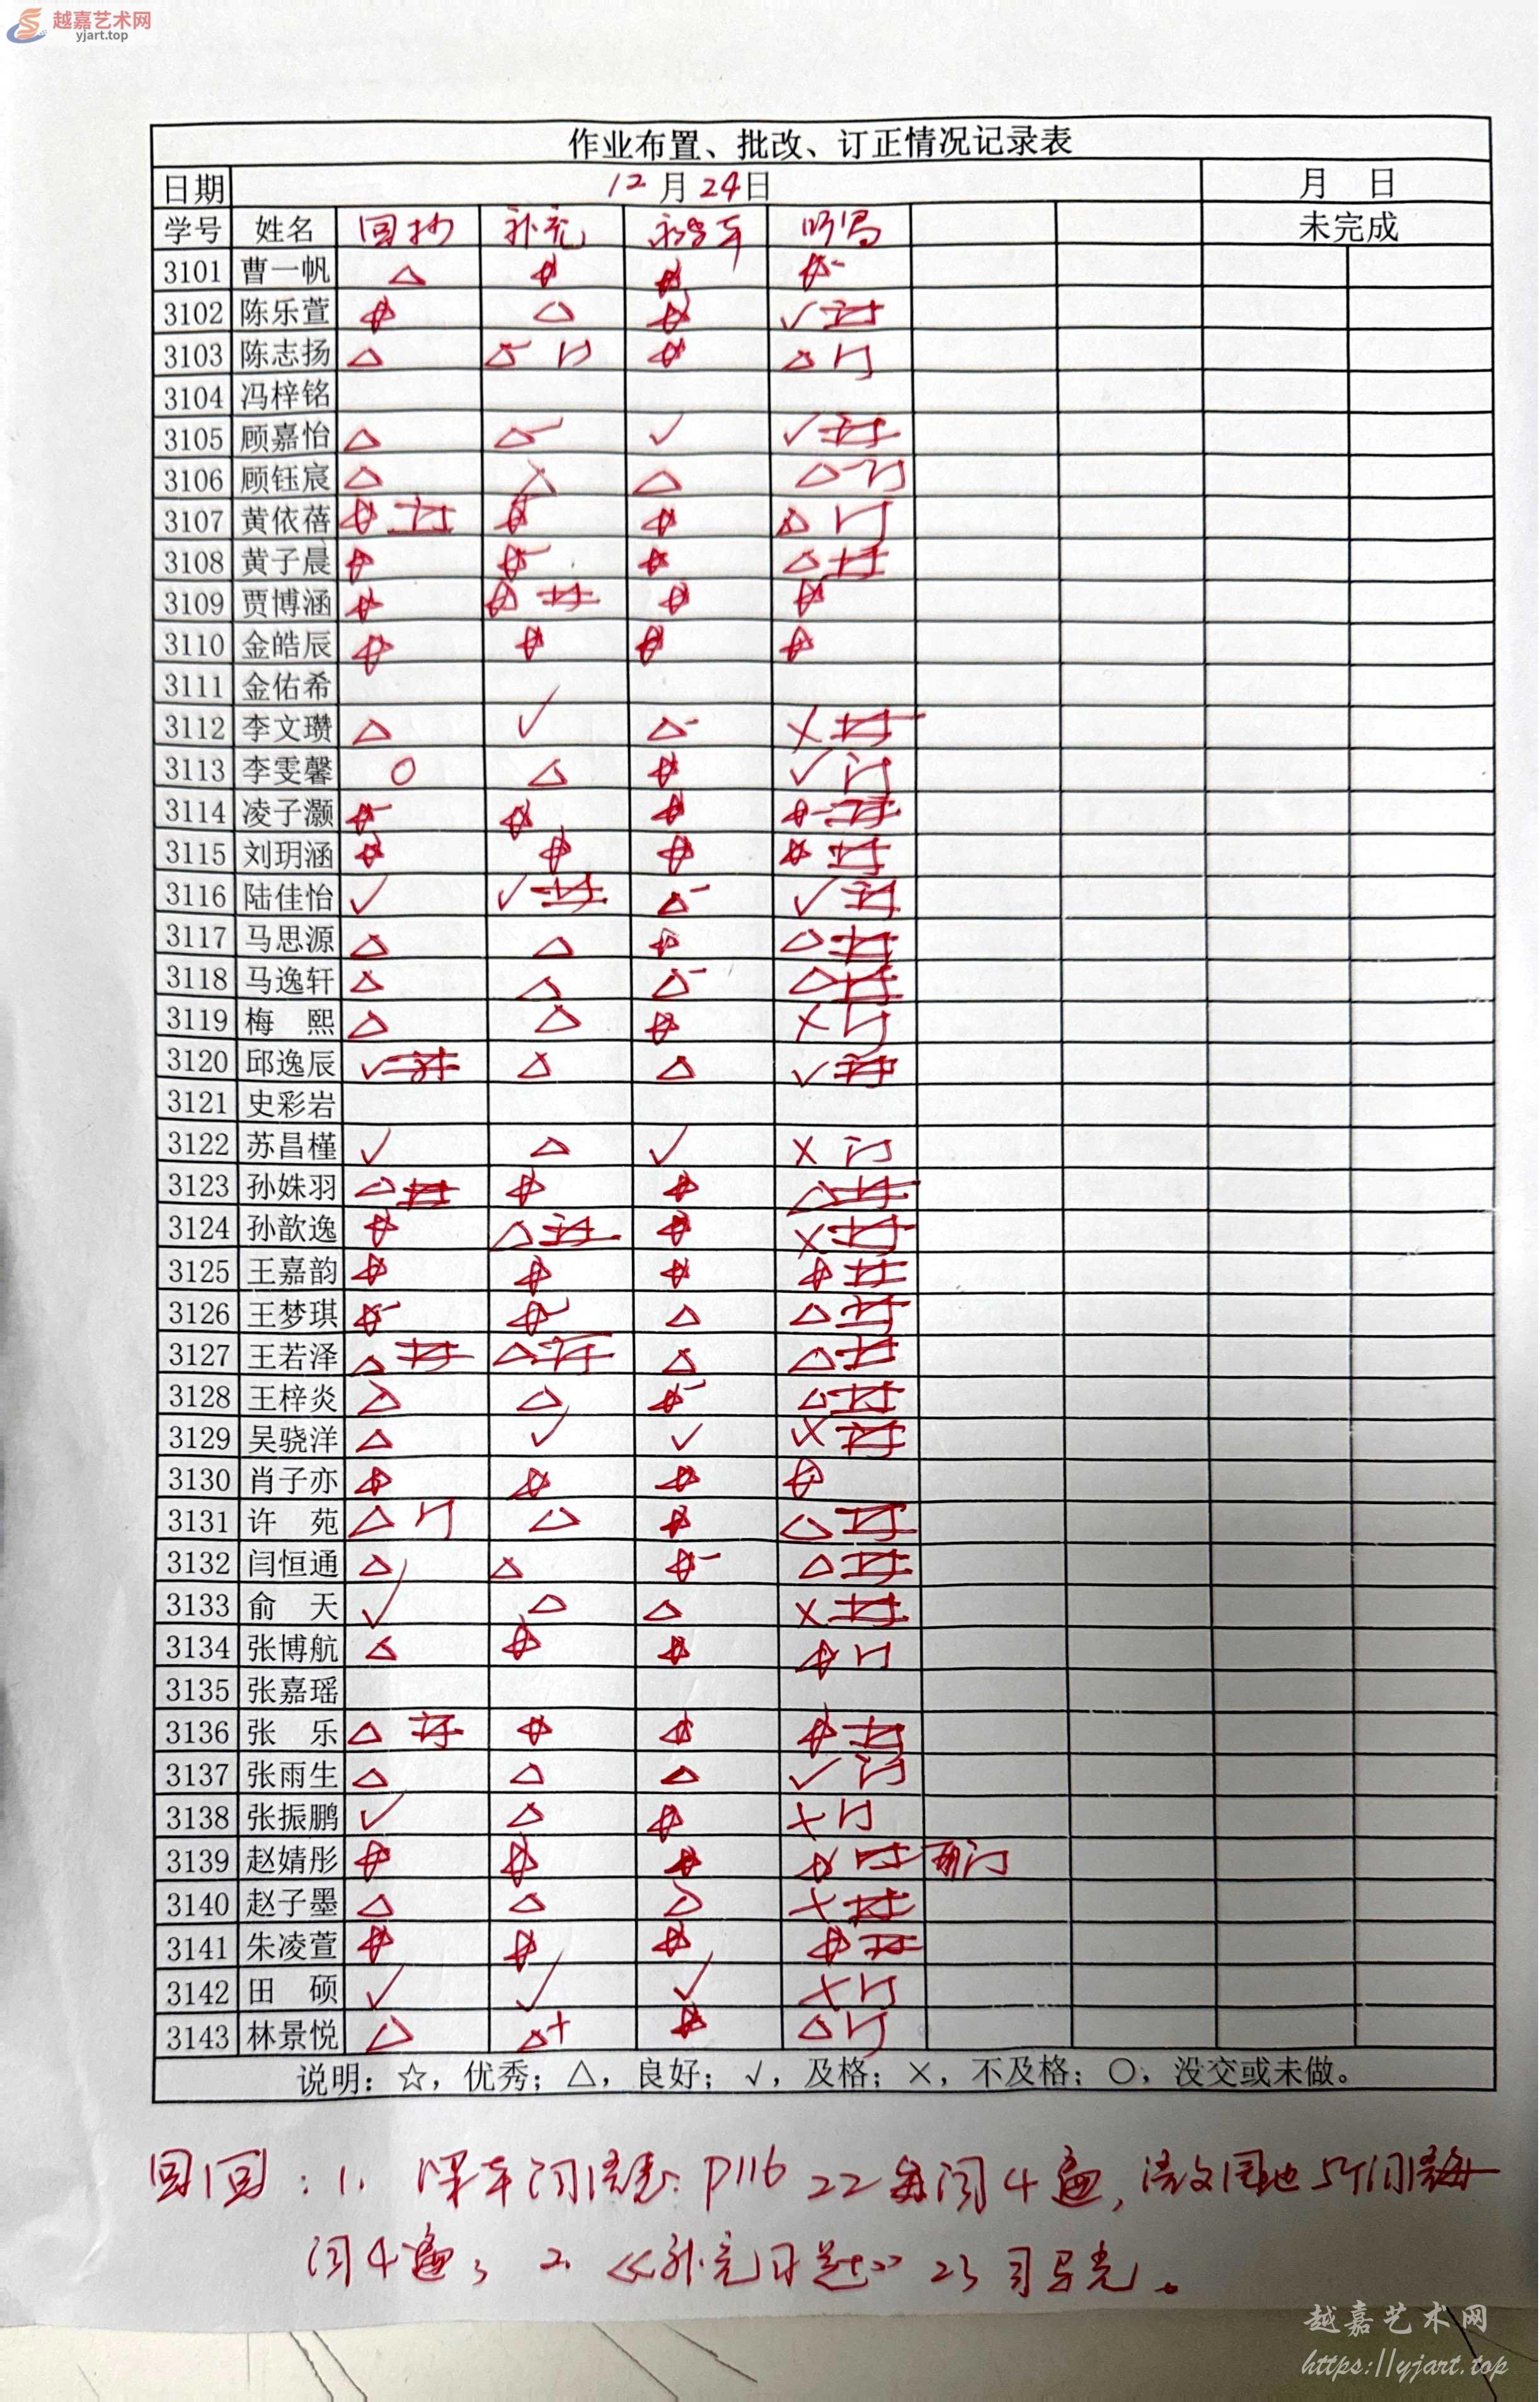 越嘉艺术网
yjart.top
作业布置、批改、订正情况记录表
日期 12月24日 月 日
学号 姓名 回抄 补充 听写 未完成
3101 曹一帆 △ ☆ ☆ ☆-
3102 陈乐萱 ☆ △ ☆ √ 订
3103 陈志扬 △ △- 订 ☆ △ 订
3104 冯梓铭
3105 顾嘉怡 △ △- √ √ 订
3106 顾钰宸 △ △ △ △ 订
3107 黄依蓓 ☆ 订 ☆ ☆ △ 订
3108 黄子晨 ☆ ☆- ☆ △ 订
3109 贾博涵 ☆ ☆ 订 ☆ ☆
3110 金皓辰 ☆ ☆ ☆ ☆
3111 金佑希
3112 李文瓒 △ √ △- × 订
3113 李雯馨 ○ △ ☆ √ 订
3114 凌子灏 ☆- ☆ ☆ ☆- 订
3115 刘玥涵 ☆ ☆ ☆ ☆ 订
3116 陆佳怡 √ √ 订 △- √ 订
3117 马思源 △ △ ☆ △ 订
3118 马逸轩 △ △ △- △ 订
3119 梅 熙 △ △ ☆ × 订
3120 邱逸辰 √ 订 △ △ √ 订
3121 史彩岩
3122 苏昌槿 √ △ √ × 订
3123 孙姝羽 △ 订 ☆ ☆ △ 订
3124 孙歆逸 ☆ △ 订 ☆ × 订
3125 王嘉韵 ☆ ☆ ☆ ☆ 订
3126 王梦琪 ☆- ☆- △ △ 订
3127 王若泽 △ 订 △ 订 △ △ 订
3128 王梓炎 △ △ ☆- △ 订
3129 吴骁洋 △ √ √ × 订
3130 肖子亦 ☆ ☆ ☆ ☆
3131 许 苑 △ 订 △ ☆ △ 订
3132 闫恒通 △ △ ☆- △ 订
3133 俞 天 √ △ △ × 订
3134 张博航 △ ☆ ☆ ☆ 订
3135 张嘉瑶
3136 张 乐 △ 订 ☆ ☆ ☆ 订
3137 张雨生 △ △ △ √ 订
3138 张振鹏 √ △ ☆ × 订
3139 赵婧彤 ☆ ☆ ☆ ☆ 订 再订
3140 赵子墨 △ △ △ × 订
3141 朱凌萱 ☆ ☆ ☆ ☆ 订
3142 田 硕 √ √ √ × 订
3143 林景悦 △ △+ ☆ △ 订
说明：☆，优秀；△，良好；√，及格；×，不及格；○，没交或未做。
回回：1. 课本词语表P116 22每词4遍，语文园地5个词语每
词4遍；2.《补充习题》23习写完。
越嘉艺术网
https://yjart.top